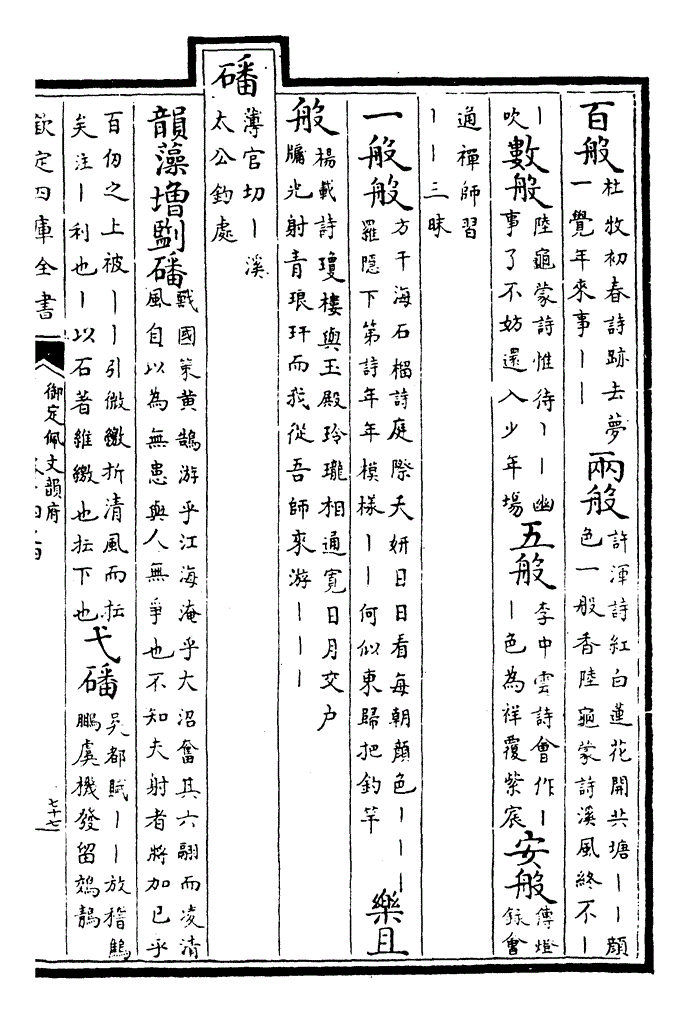 百般
杜牧初春詩跡去夢
一覺年來事丨丨
兩般
許渾詩紅白蓮花開共塘丨丨顔
色一般香陸龜蒙詩溪風終不丨
丨
吹
數般
陸龜蒙詩惟待丨丨幽
事了不妨還入少年場
五般
李中雲詩會作丨
丨色為祥覆紫宸
安般
傳燈
録會
通禪師習
丨丨三昧
一般般
方干海石榴詩庭際夭妍日日看每朝顔色丨丨丨
羅隠下第詩年年模様丨丨何似東歸把釣竿
樂且
般
楊載詩瓊樓與玉殿玲瓏相通寛日月交户
牖光射青琅玕而我從吾師來游丨丨丨
磻
薄官切丨溪
太公釣處
韻藻增劉磻
戰國策黄鵠游乎江海淹乎大沼奮其六翮而凌清
風自以為無患與人無爭也不知夫射者將加已乎
百仞之上被丨丨引微繳折清風而抎
矣注丨利也丨以石著維繳也抎下也
弋磻
吳都賦丨丨放稽鷦
鵬虞機發留鵁鶄
欽定四庫全書
御定佩文韻府
七十七